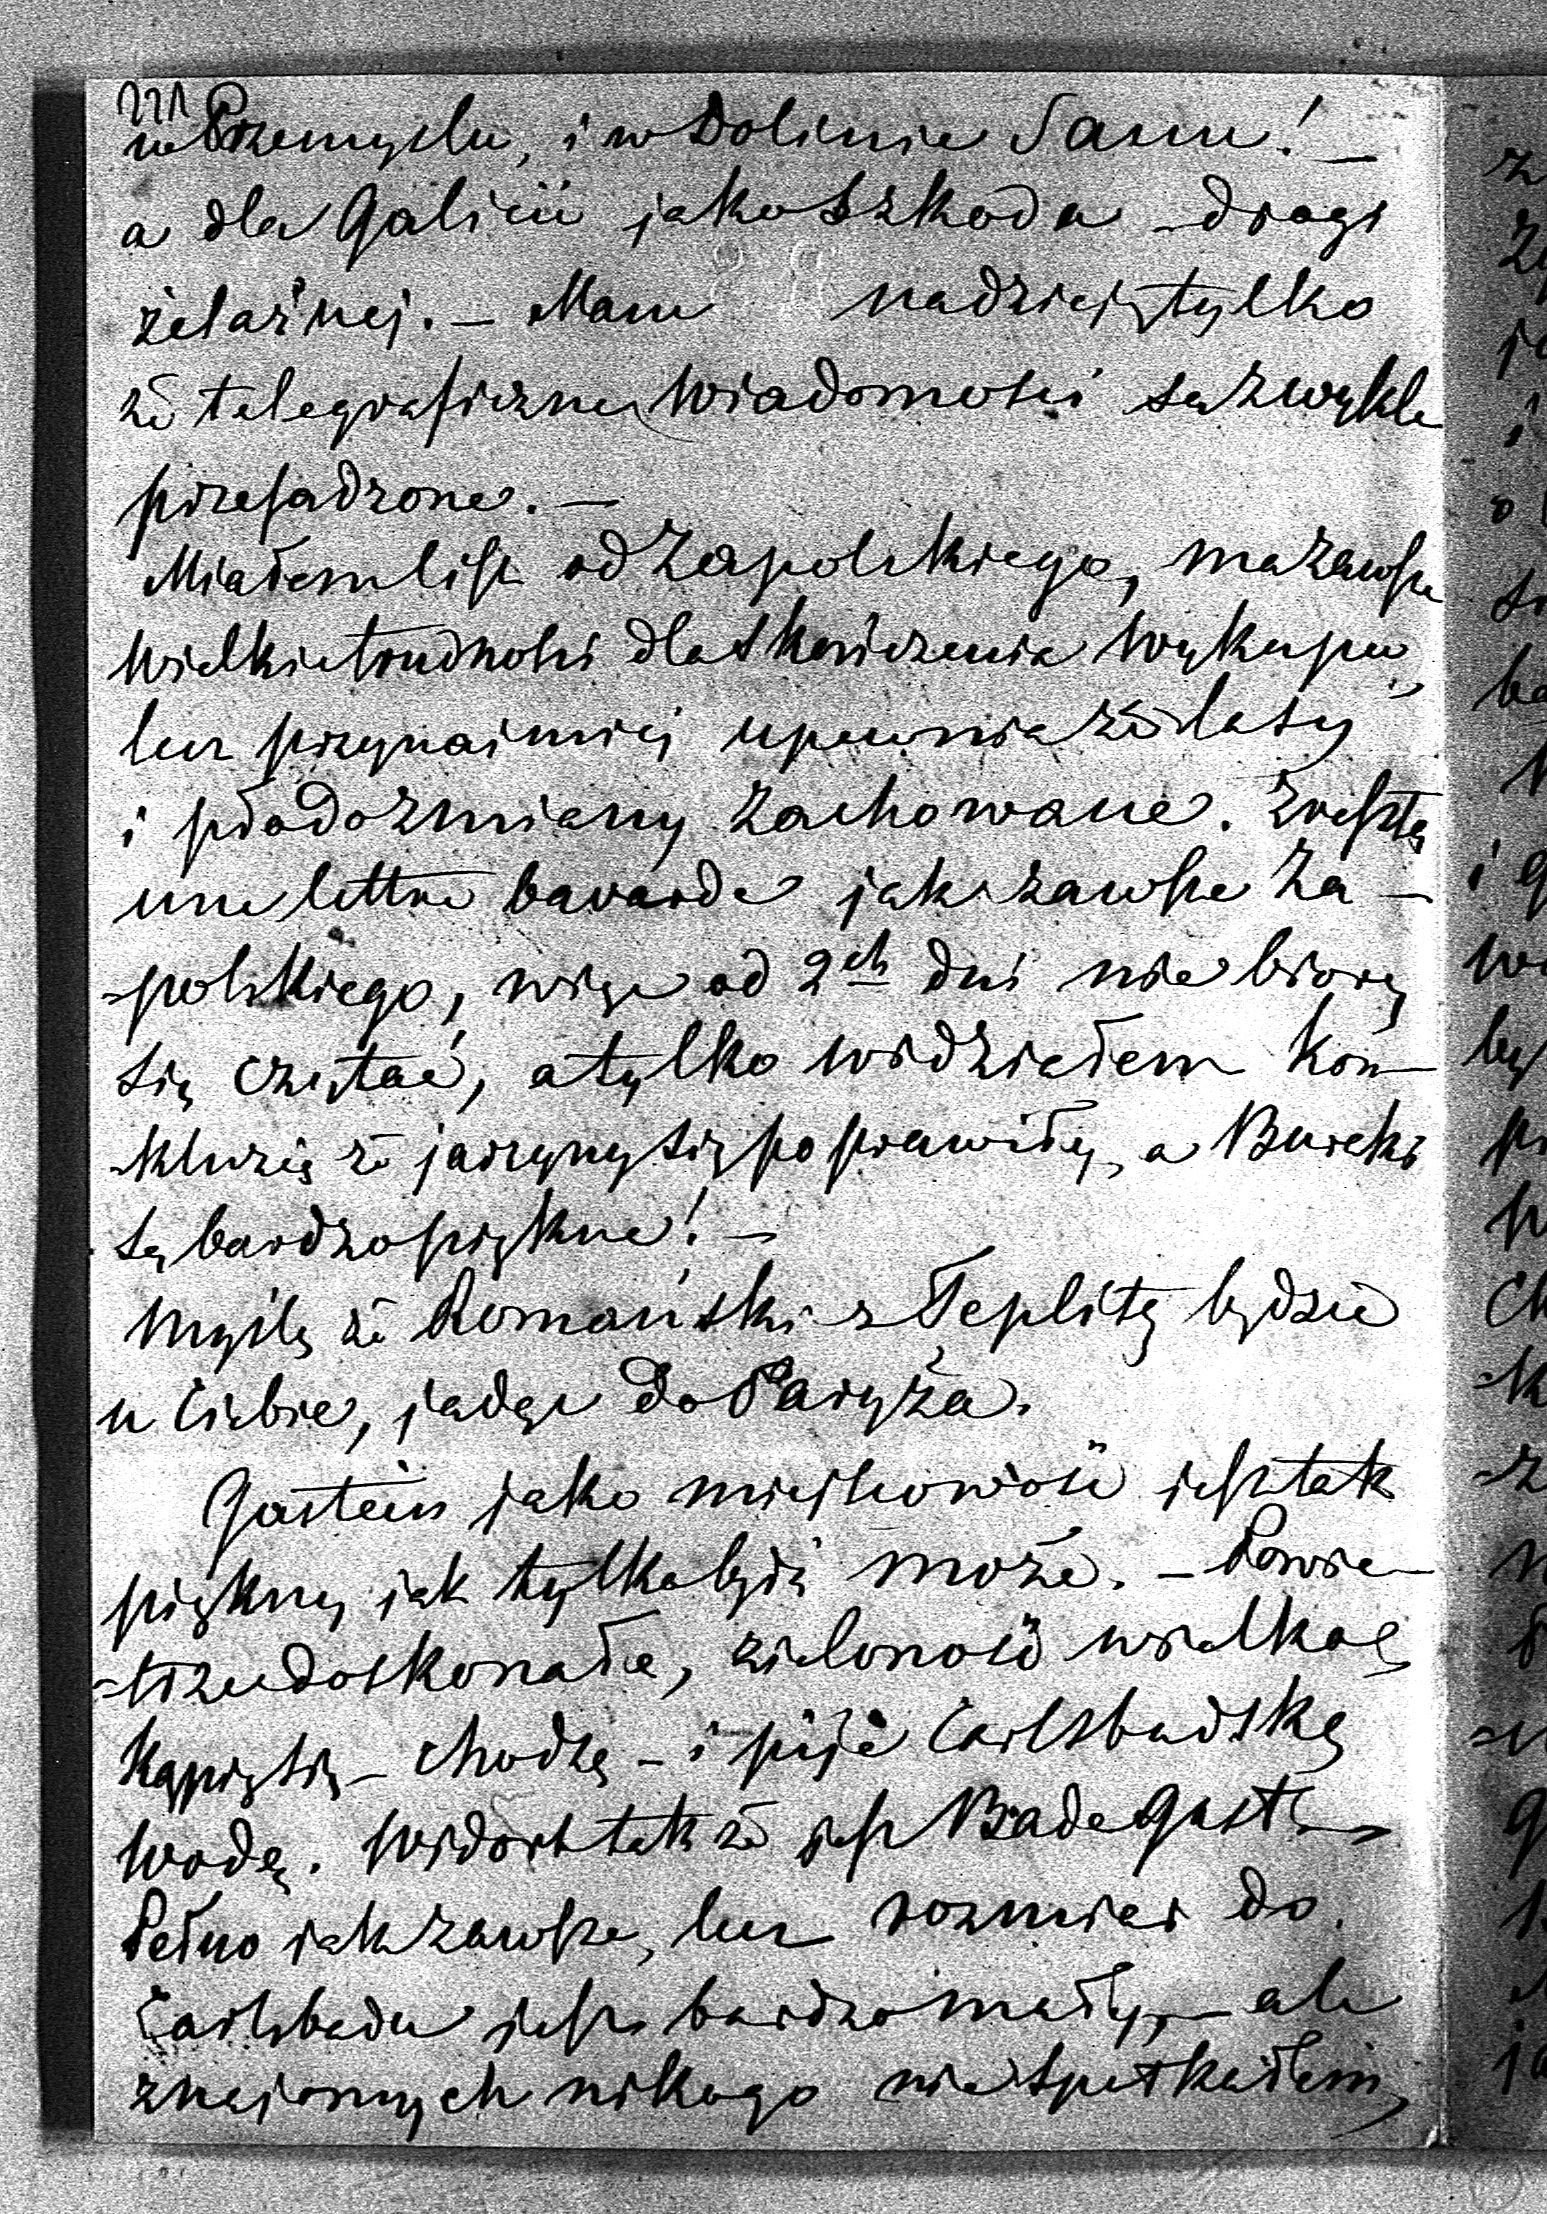 221
w Przemyslu, i w Dolinie Sanu! —
a dla Galicii jako szkoda drogi
żelaźnej. — Mam nadzieję tylko
że telegraficzne wiadomości są zwykle
przesadzone. —
Miałem list od Zapolskiego, ma zawsze
wielkie trudności dla skończenia wykupu,
lecz przynaimniej upewnia że lasy
i płodozmiany zachowane. Zresztą
une lettre bavarde jak zawsze Za-
-polskiego, więc od 2ch dni nie biorę
się czytać, a tylko widziałem kon-
-kluzię że jarzyny się poprawiły, a Buraki
są bardzo piękne! —
Myślę że Romański z Teplitz będzie
u Ciebie, jadąc do Paryża.
Gastein jako miejscowość jest tak
piękny jak tylko być może. — Powie-
-trze doskonałe, zieloność wielka
Kąpię się — chodzę — i piję Carlsbadską
wodę. Widok tak że jest Bade Gast
Pełno jak zawsze, lecz rozmiar do
Carlsbadu jest bardzo mały, — ale
znajomych nikogo nie spotkałem,